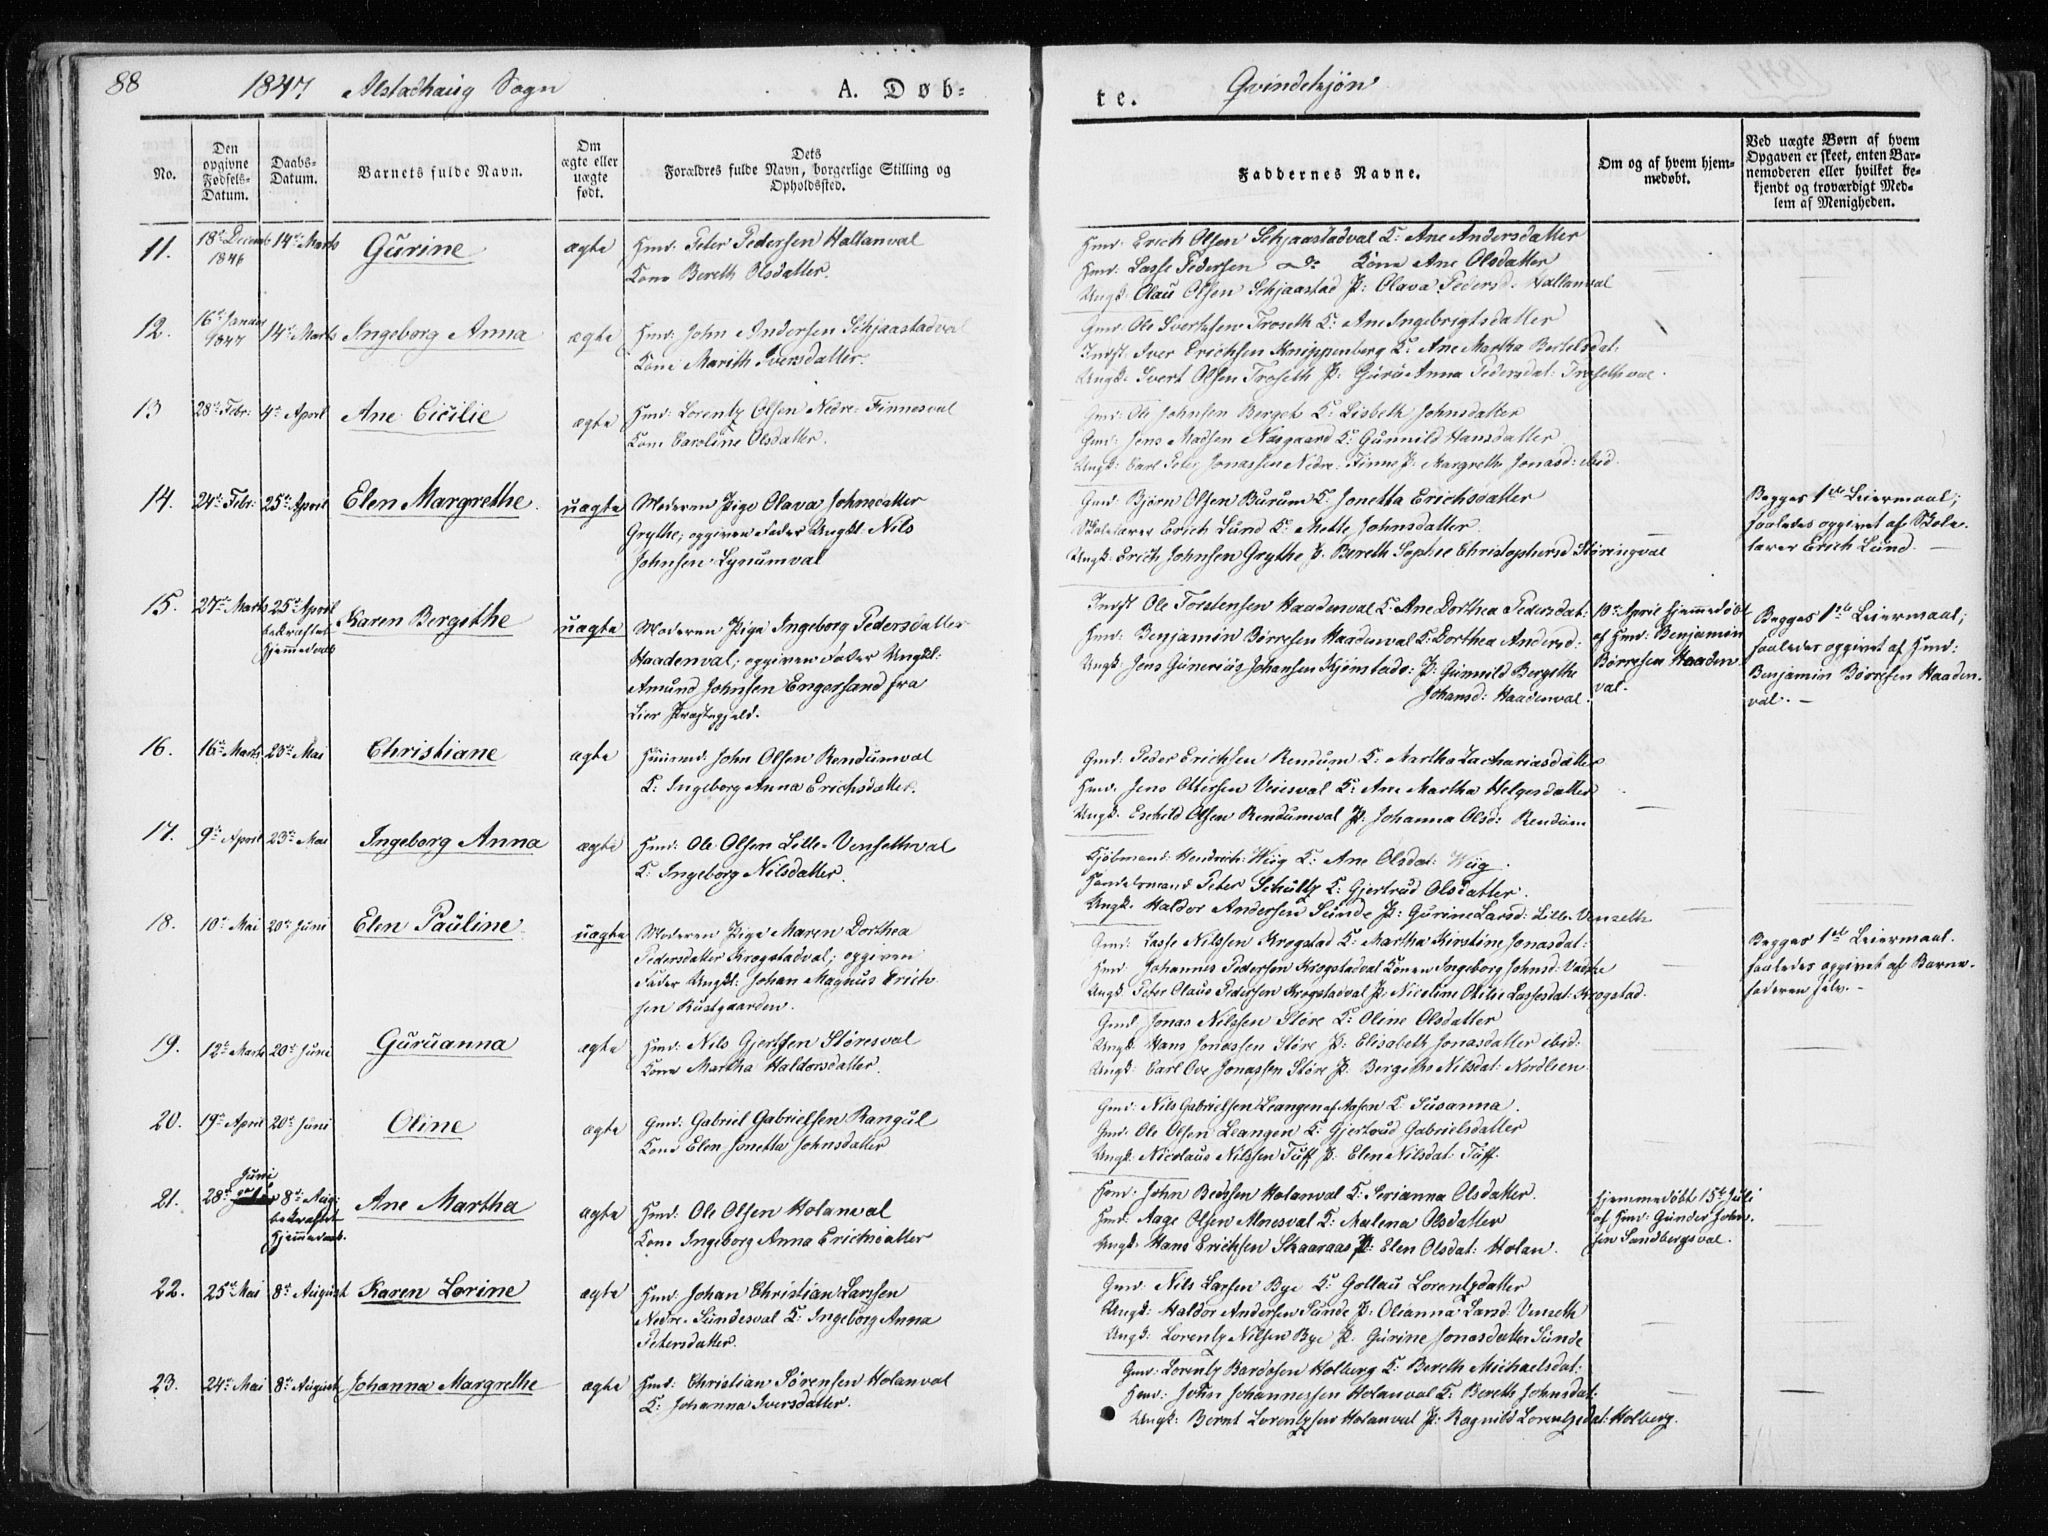 88
1847 Alstadhaug Sogn
A. Døb-
No.
Den opgivne Fødsels-Datum.
Daabs-Datum.
Barnets fulde Navn.
Om ægte eller uægte født.
Dets Forældres fulde Navn, borgerlige Stilling og Opholdssted.
11. 18de Decemb 1846 14de Marts Gurine ægte Hmd: Peter Pedersen Hallanval
Kone Bereth Olsdatter.
12. 16de Januar 1847 14de Marts Ingeborg Anna ægte Hmd: John Andersen Schjaastadval
Kone Marith Iversdatter.
13 28de Febr: 4de April Ane Cicilie ægte Hmd: Lorentz Olsen Nedre-Finnesval
Kone Caroline Olsdatter.
14. 24de Febr: 25de April Elen Margrethe. uægte Moderen Pige Olava Johnsdatter
Grythe; opgiven Fader Ungkl: Nils
Johnsen Lynumval
15. 27de Marts 25de April bekræftet Hjemmedaab Karen Bergithe uægte Moderen Pige Ingeborg Pedersdatter
Haadenval; opgiven Fader Ungkl:
Amund Johnsen Engersand fra
Lier Præstegjeld.
16. 16de Marts 23de Mai Christiane ægte Huusmd: John Olsen Rendumval
K: Ingeborg Anna Erichsdatter.
17. 9de April 23de Mai Ingeborg Anna ægte Hmd: Ole Olsen Lille-Vensethval
K: Ingeborg Nilsdatter.
18. 10de Mai 20de Juni Elen Pauline uægte Moderen Pige Maren Dorthea
Pedersdatter Krogstadval; opgiven
Fader Ungkl: Johan Magnus Erich-
sen Rustgaarden.
19. 12de Marts 20de Juni Guruanna ægte Hmd: Nils Gjertsen Støresval
Kone Martha Haldorsdatter.
20. 19de April 20de Juni Oline ægte Gmd: Gabriel Gabrielsen Rangul
Kone Elen Jonetta Johnsdatter
21. 28de Juni 8de Aug: bekræftet Hjemmedaab. Ane Martha ægte Hmd: Ole Olsen Holanval
Kone Ingeborg Anna Erichsdatter
22. 25de Mai 8de August Karen Lorine ægte Hmd: Johan Christian Larssen
Nedre-Sundesval K: Ingeborg Anna
Petersdatter.
23. 24de Mai 8de August Johanna Margrethe ægte Hmd: Christian Sørensen Holanval
K: Johanna Iversdatter.
te. Qvindekjøn
Faddernes Navne.
Om og af hvem hjemmedøbt.
Ved uægte Børn af hvem Opgaven er skeet, enten Barnemoderen eller hvilket bekjendt og troværdigt Medlem af Menigheden.
Hmd: Erich Olsen Schjaastadval K: Ane Andersdatter
Hmd: Lasse Pedersen do Kone Ane Olsdatter
Ungk: Olau Olsen Schjaastad P: Olava Pedersd. Hallanval
Gmd: Ole Sivertsen Troseth K: Ane Ingebrigtsdatter
Indst: Iver Erichsen Knippenberg K: Ane Martha Bertelsdat:
Ungk: Sivert Olsen Troseth P: Guru Anna Pedersdat: Trosethval.
Gmd: Ole Johnsen Berget K: Lisbeth Johnsdatter
Gmd: Jens Madsen Næsgaard K: Gunnild Hansdatter
Ungk: Carl Peter Jonassen Nedre-Finne P: Margrethe Jonasd: ibid.
Gmd: Bjørn Olsen Burum K: Jonetta Erichsdatter
Skolelærer Erich Lund K: Mette Johnsdatter.
Ungk: Erich Johnsen Grythe P: Bereth Sophie Christophersd Støringval
Begges 1ste Leiermaal;
saaledes opgivet af Skole-
lærer Erich Lund. —
Indst Ole Torstensen Haadenval K: Ane Dorthea Pedersdat:
Hmd: Benjamin Børresen Haadenval K: Dorthea Andersd:
Ungk: Jens Gunerius Johansen Kjønstads: P: Gunnild Bergithe
Johansd: Haadenval.
10de April hjemmedøbt
af Hmd: Benjamin
Børresen Haaden-
val.
Begges 1ste Leiermaal;
saaledes opgivet af Hmd:
Benjamin Børresen Haaden-
val. —
Gmd: Peder Erichsen Rendum K: Martha Zachariasdatter
Hmd: Jens Ottersen Veiesval K: Ane Martha Helgesdatter
Ungk: Eschild Olsen Rendumval P: Johanna Olsd: Rendum
Kjøbmand: Hendrich Wiig K: Ane Olsdat: Wiig.
Handelsmand Peter Schultz K: Gjertrud Olsdatter.
Ungk: Haldor Andersen Sunde P: Gurine Larsd: Lille-Venseth
Gmd: Lasse Nilssen Krogstad K: Martha Kirstine Jonasdat:
Hmd: Johannes Pedersen Krogstadval Konen Ingeborg Johnsd:
Ungk: Peter Olaus Pedersen Krogstadval P: Nicoline Otilie Lassesdat: Krogstad.
Begges 1ste Leiermaal.
saaledes opgivet af Barne-
faderen selv. —
Gmd Jonas Nilssen Støre K: Oline Olsdatter
Ungk: Hans Jonassen Støre P: Elisabeth Jonasdatter ibid:
Ungk: Carl Ove Jonassen Støre P: Bergithe Nilsdat: Nordlien.
Gmd: Nils Gabrielsen Leangen af Aasen K: Susanna.
Gmd: Ole Olsen Leangen K: Gjertrud Gabrielsdatter
Ungk: Nicolaus Nilssen Tuff P: Elen Nilsdat: Tuff.
Hmd: John Bedssen Holanval K: Serianna Olsdatter.
Hmd: Aage Olsen Alnesval K: Malena Olsdatter
Ungk: Hans Erichsen Skaaraas P: Elen Olsdat: Holan.
Hjemmedøbt 15de Juli
af Hmd: Gunder John-
sen Sandbergsval.
Gmd: Nils Larsen Bye K: Gollau Lorentzdatter
Ungk: Haldor Andersen Sunde P: Olianna Larsd: Venseth
Ungk: Lorentz Nilsen Bye P: Gurine Jonasdatter Sunde
Gmd: Lorentz Bardosen Holberg K: Bereth Michaelsdat:
Hmd: John Johannessen Holanval K: Bereth Johnsdat:
Ungk: Bernt Lorentzsen Holanval P: Ragnild Lorentzsdat: Holberg.